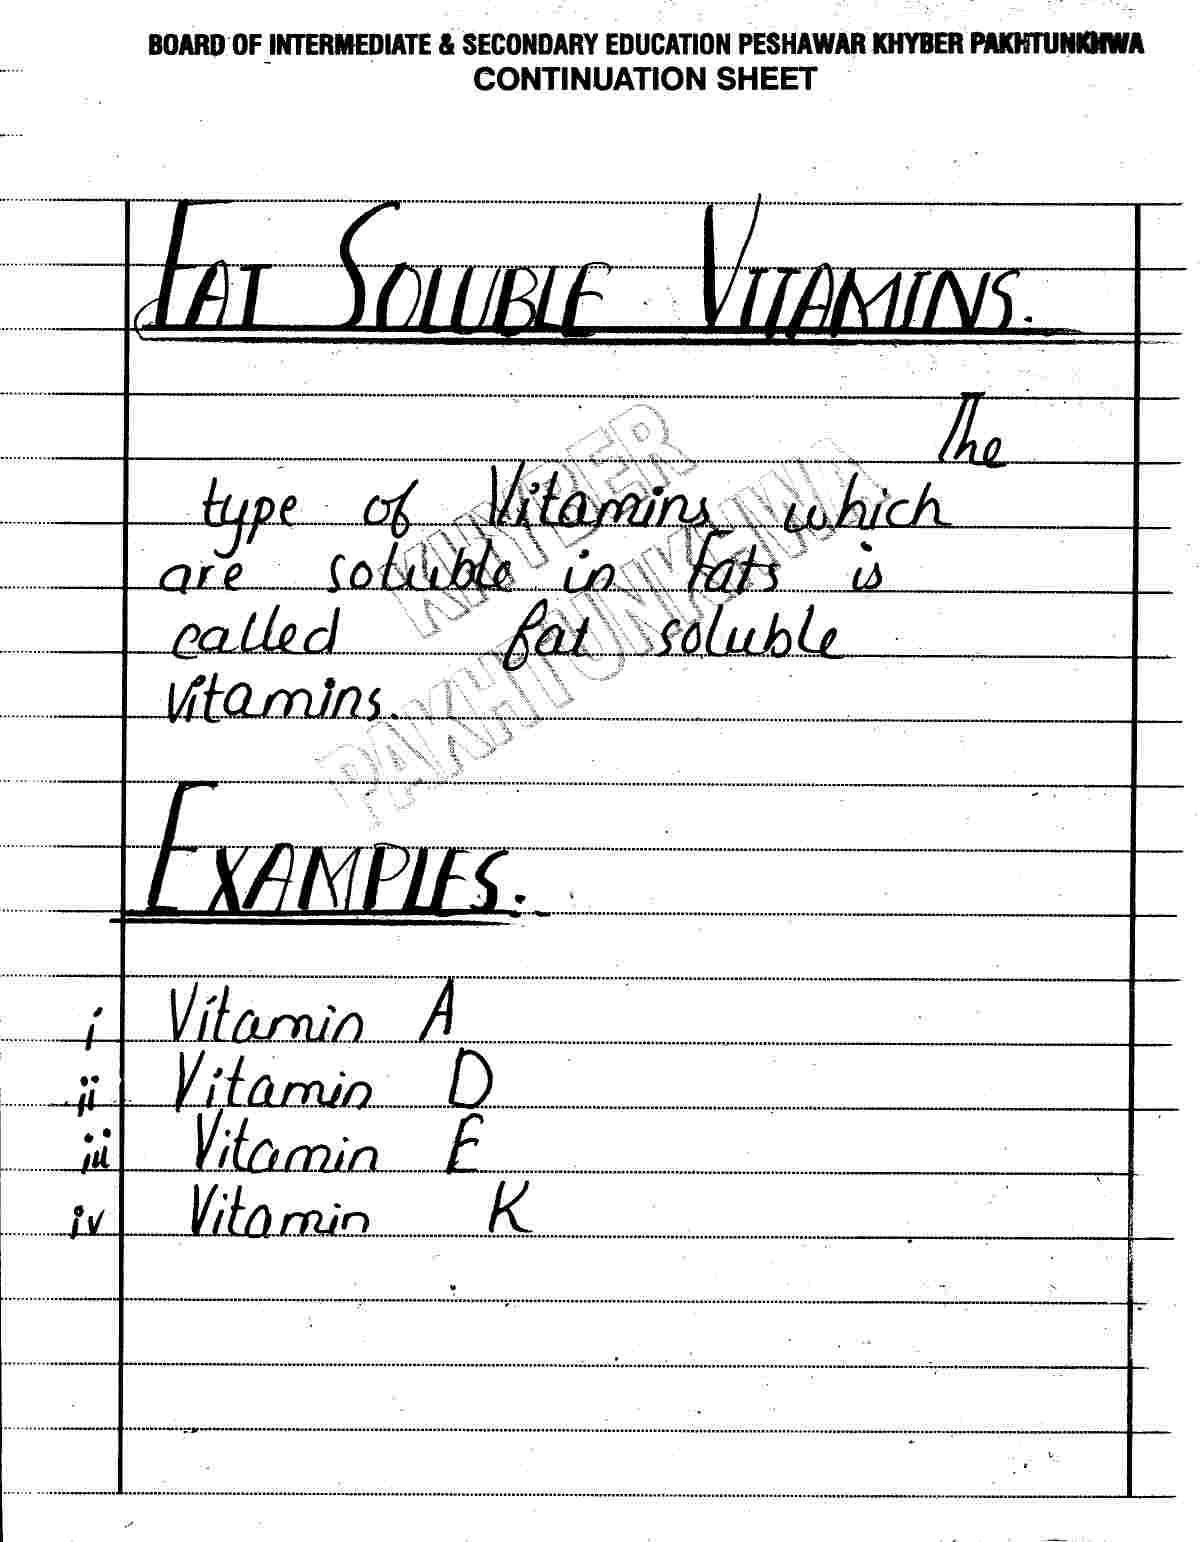 BOARD OF INTERMEDIATE & SECONDARY EDUCATION PESHAWAR KHYBER PAKHTUNKHWA
CONTINUATION SHEET
FAT SOLUBLE VITAMINS.
The
type of Vitamins which
are soluble in Fats is
called fat soluble
vitamins.
KHYBER
PAKHTUNKHWA
EXAMPLES.
i Vitamin A
ii Vitamin D
iii Vitamin E
iv Vitamin K